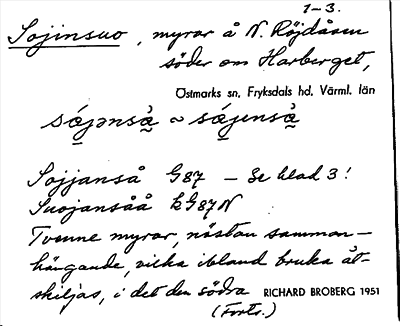 1-3.
Sojinsuo, myrar å N. Röjdåsen
söder om Harberget,
Östmarks sn, Fryksdals hd, Värml. län
sǫ́jənså̀ ~ sǫ́jenså̀
Sojjanså G87 - Se blad 3!
Suojansåå kG87N
Tvenne myrar, nästan samman-
hängande, vilka ibland bruka åt-
skiljas, i det den södra RICHARD BROBERG 1951
(Forts.)